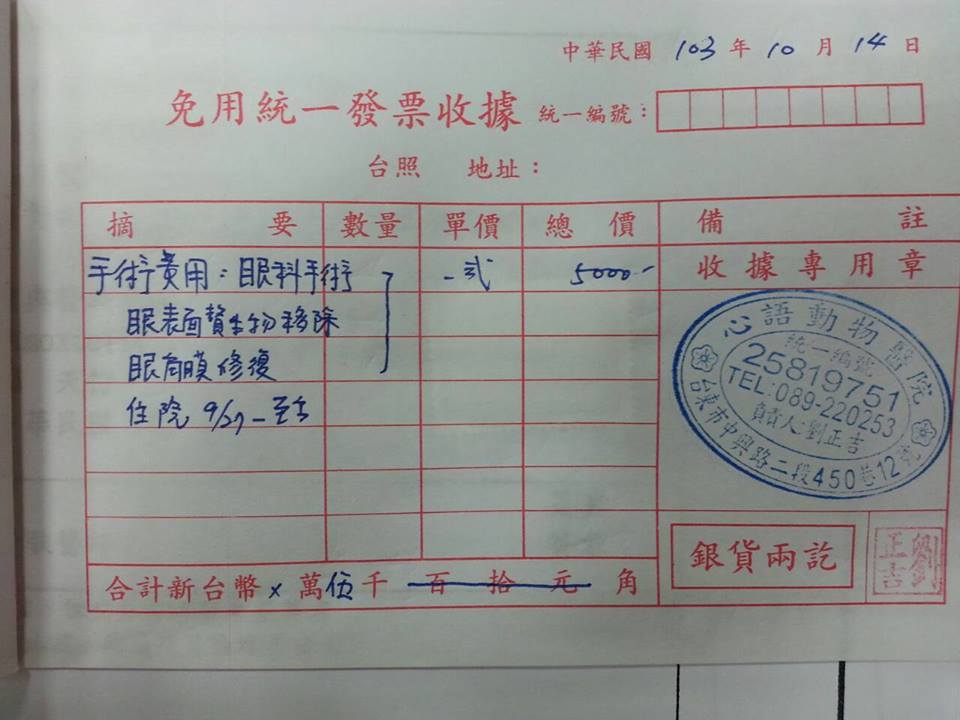 中華民國 103 年 10 月 14 日
免用統一發票收據 統一編號：
台照 地址：
摘要 數量 單價 總價 備註
手術費用：眼科手術 一式 5000- 收據專用章
眼表面贅生物移除
眼角膜修復
住院 9/27 - 至今
心語動物醫院
統一編號
25819751
TEL:089-220253
負責人:劉正吉
台東市中興路二段450巷12號
合計新台幣 x 萬 伍 千 百 拾 元 角
銀貨兩訖
劉正吉